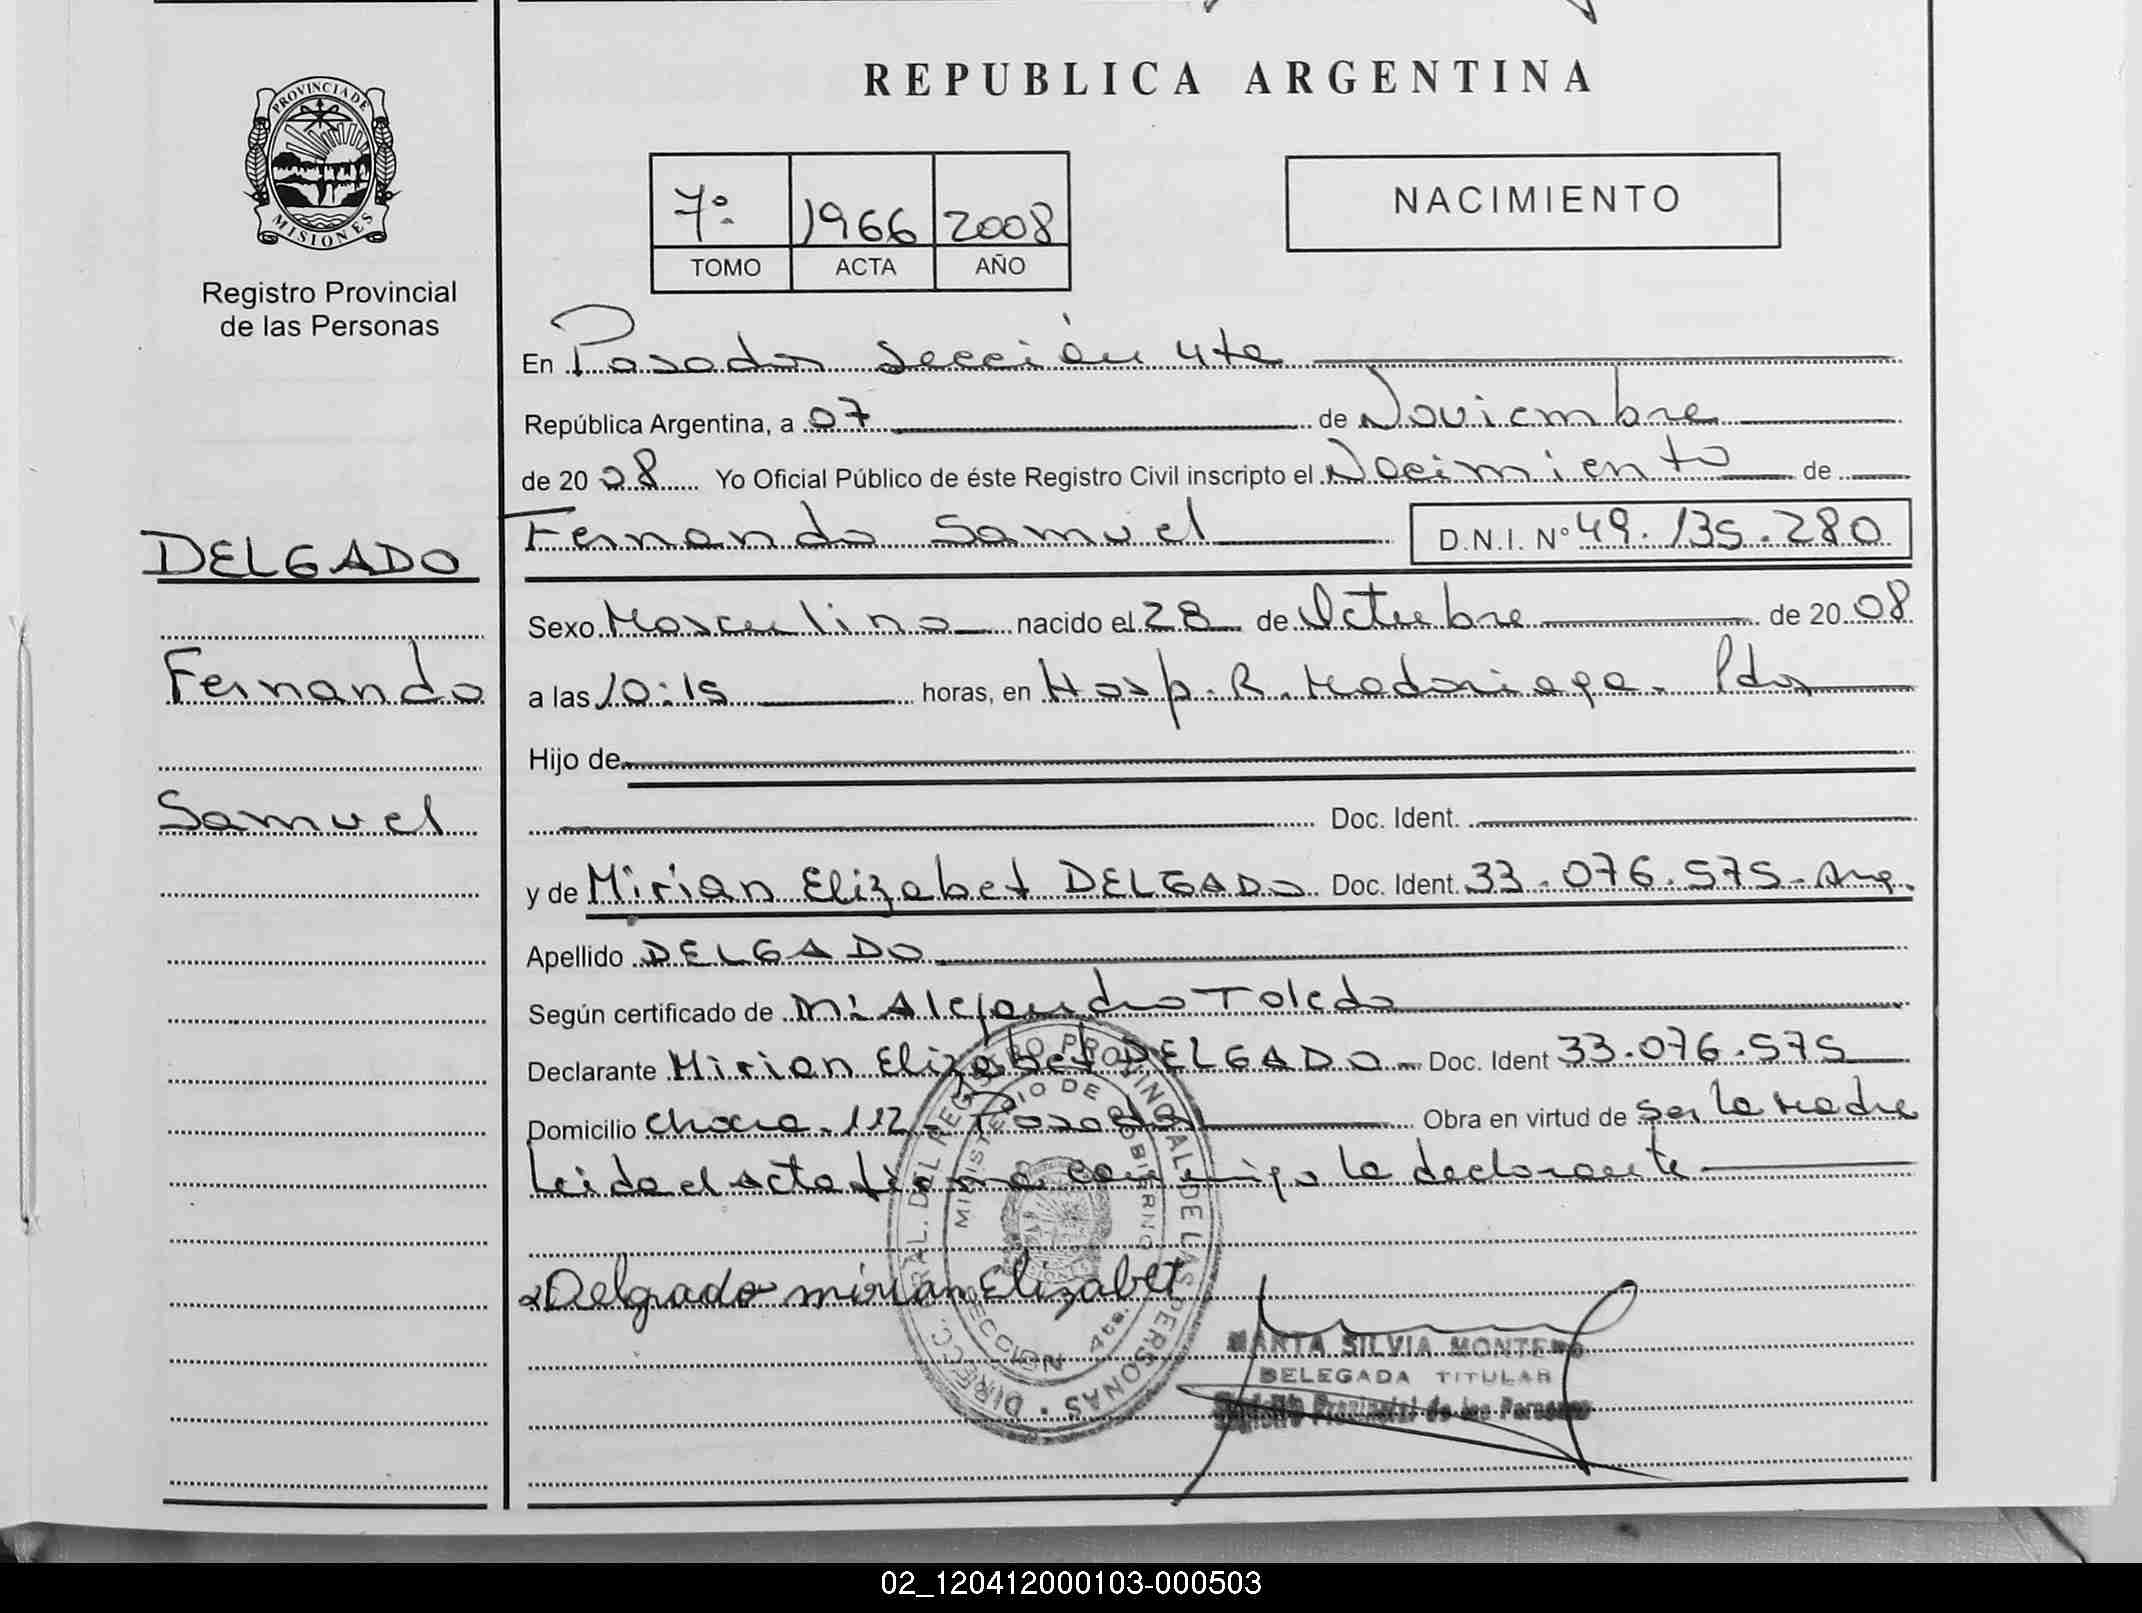 REPUBLICA ARGENTINA
PROVINCIA DE
MISIONES
Registro Provincial
de las Personas
7º 1966 2008
TOMO ACTA AÑO
NACIMIENTO
En Posadas Sección 4ta
República Argentina, a 07 de Noviembre
de 2008 Yo Oficial Público de éste Registro Civil inscripto el Nacimiento de
Fernando Samuel D.N.I. Nº 49.135.280
DELGADO
Fernando
Samuel
Sexo Masculino nacido el 28 de Octubre de 2008
a las 10:15 horas, en Hosp. R. Madariaga. Pdas
Hijo de
Doc. Ident.
y de Mirian Elizabet DELGADO Doc. Ident. 33.076.575-Arg.
Apellido DELGADO
Según certificado de Alejandro Toledo
Declarante Mirian Elizabet DELGADO Doc. Ident 33.076.575
Domicilio Chacra. 112 - Posadas Obra en virtud de ser la Madre
Leida el Acta firma conmigo la declarante
Delgado mirian Elizabet
DIRECC. GRAL. DEL REGISTRO PROVINCIAL DE LAS PERSONAS
MINISTERIO DE GOBIERNO
SECCION 4ta.
MARTA SILVIA MONTERO
DELEGADA TITULAR
Registro Provincial de las Personas
02_120412000103-000503